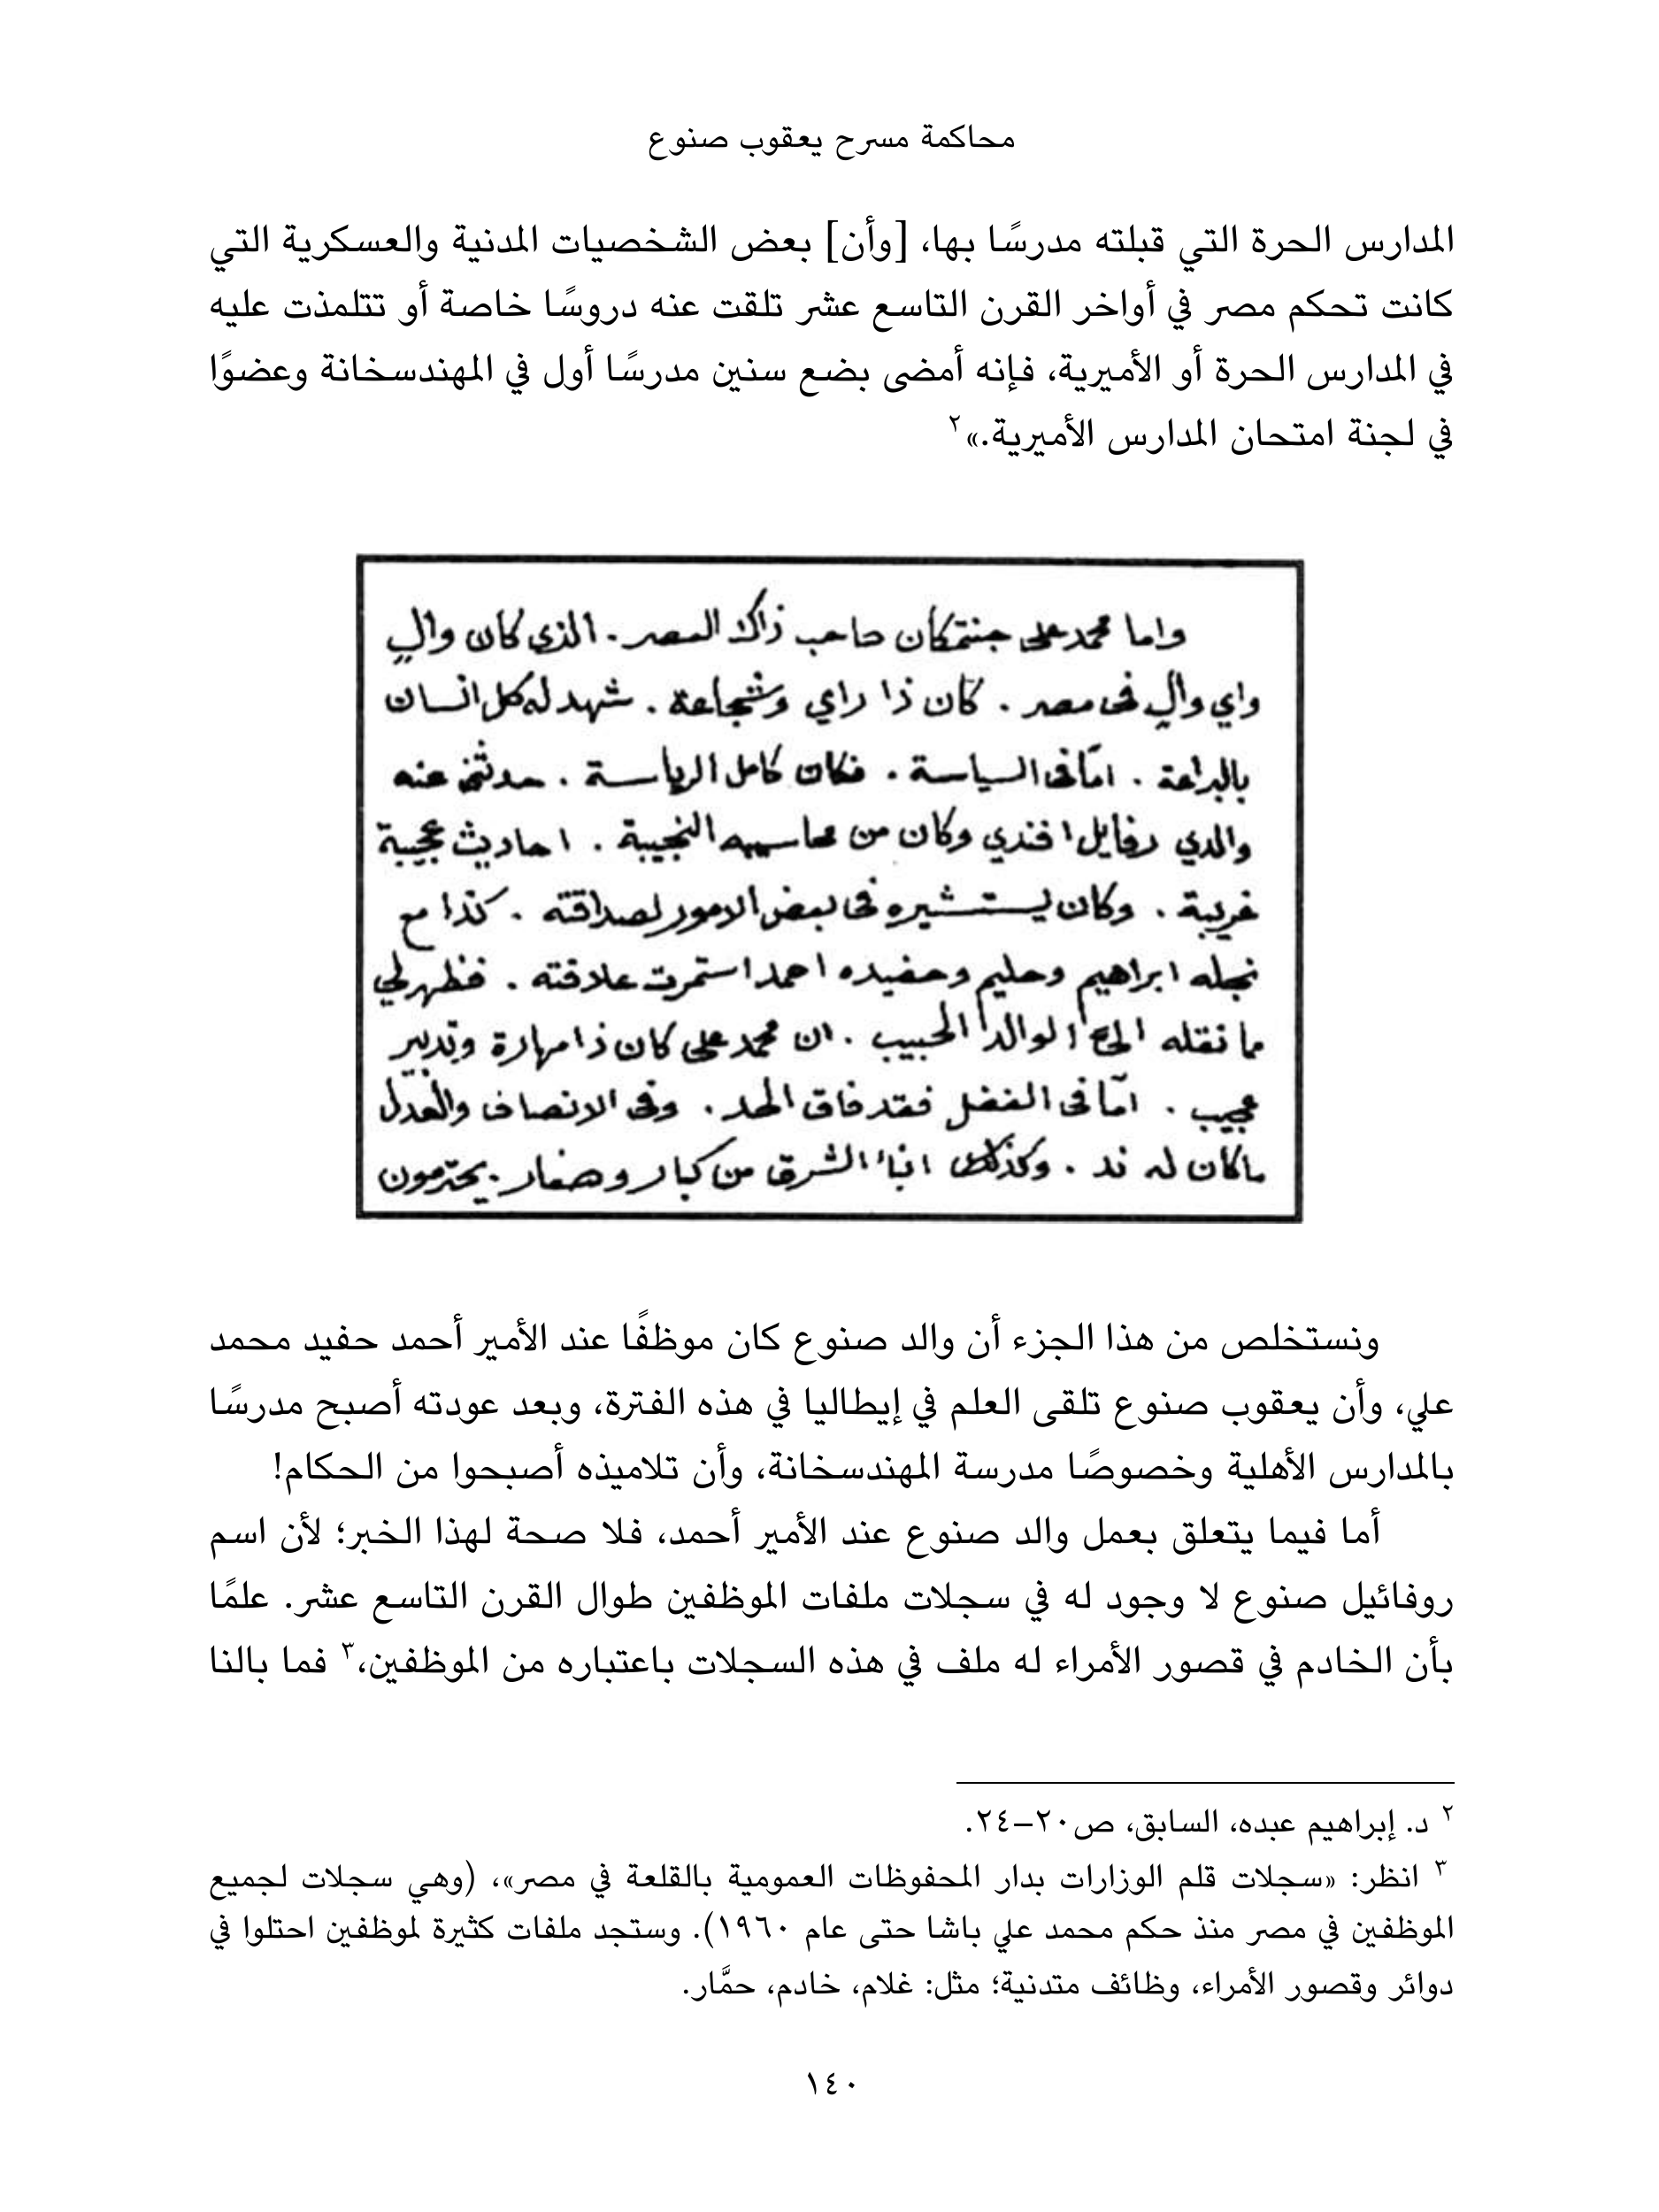 محاكمة مسرح يعقوب صنوع
المدارس الحرة التي قبلته مدرسًا بها، [وأن] بعض الشخصيات المدنية والعسكرية التي
كانت تحكم مصر في أواخر القرن التاسع عشر تلقت عنه دروسًا خاصة أو تتلمذت عليه
في المدارس الحرة أو الأميرية، فإنه أمضى بضع سنين مدرسًا أول في المهندسخانة وعضوًا
في لجنة امتحان المدارس الأميرية.»٢
واما محمد على جنتمكان صاحب ذاك العصر . الذي كان والٍ
واي والٍ فى مصر . كان ذا راي وشجاعة . شهد له كل انسان
بالبراعة . امّا فى السياسة . فكان كامل الرياسة . حدثنى عنه
والدي رفايل افندي وكان من محاسيبه النجيبة . احاديث عجيبة
غريبة . وكان يستشيره فى بعض الامور لصداقته . كذا مع
نجله ابراهيم وحليم وحفيده احمد استمرت علاقته . فظهر لي
ما نقله الوالد الحبيب . ان محمد على كان ذا مهارة وتدبير
عجيب . امّا فى الفضل فقد فاق الحد . وفى الانصاف والعدل
ماكان له ند . وكذلك ابناء الشرق من كبار وصغار . يحترمون
ونستخلص من هذا الجزء أن والد صنوع كان موظفًا عند الأمير أحمد حفيد محمد
علي، وأن يعقوب صنوع تلقى العلم في إيطاليا في هذه الفترة، وبعد عودته أصبح مدرسًا
بالمدارس الأهلية وخصوصًا مدرسة المهندسخانة، وأن تلاميذه أصبحوا من الحكام!
أما فيما يتعلق بعمل والد صنوع عند الأمير أحمد، فلا صحة لهذا الخبر؛ لأن اسم
روفائيل صنوع لا وجود له في سجلات ملفات الموظفين طوال القرن التاسع عشر. علمًا
بأن الخادم في قصور الأمراء له ملف في هذه السجلات باعتباره من الموظفين،٣ فما بالنا
٢ د. إبراهيم عبده، السابق، ص٢٠–٢٤.
٣ انظر: «سجلات قلم الوزارات بدار المحفوظات العمومية بالقلعة في مصر»، (وهي سجلات لجميع
الموظفين في مصر منذ حكم محمد علي باشا حتى عام ١٩٦٠). وستجد ملفات كثيرة لموظفين احتلوا في
دوائر وقصور الأمراء، وظائف متدنية؛ مثل: غلام، خادم، حمَّار.
١٤٠